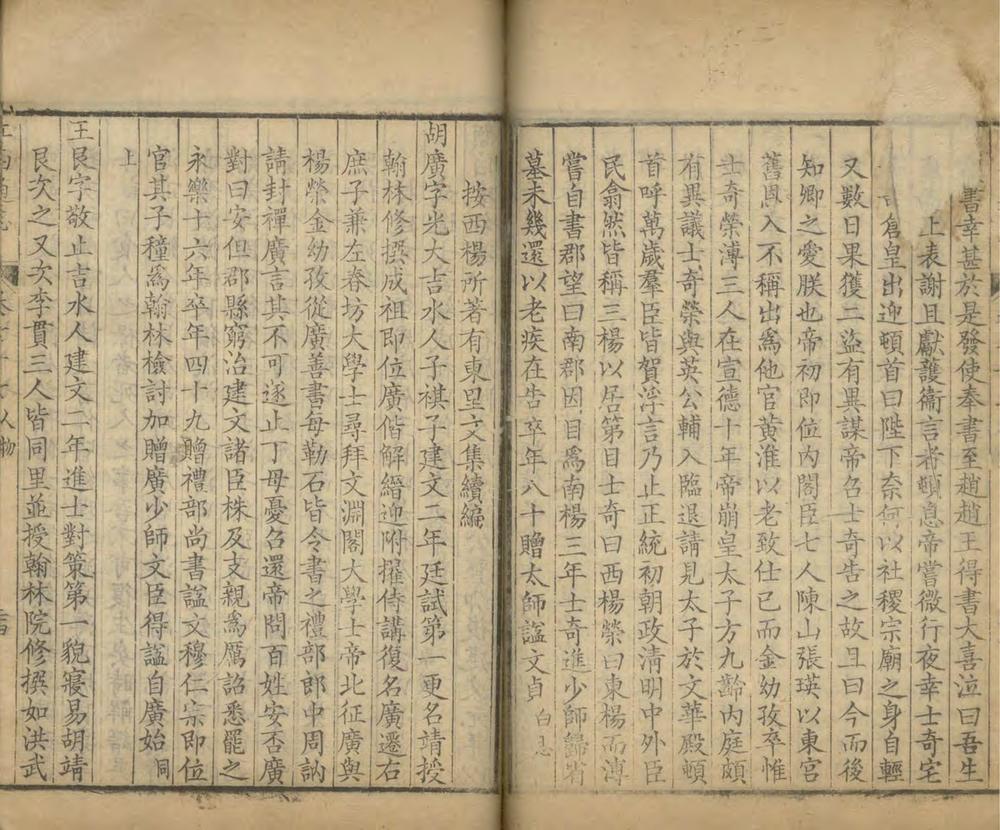 書幸甚於是發使奉書至趙趙王得書大喜泣曰吾生
上表謝且獻護衛言者頓息帝嘗微行夜幸士奇宅
倉皇出迎頓首曰陛下奈何以社稷宗廟之身自輕
又數日果獲二盜有異謀帝召士奇告之故且曰今而後
知卿之愛朕也帝初即位內閣臣七人陳山張瑛以東宮
舊恩入不稱出爲他官黃淮以老致仕已而金幼孜卒惟
士奇榮溥三人在宣德十年帝崩皇太子方九齡內庭頗
有異議士奇榮與英公輔入臨退請見太子於文華殿頓
首呼萬歲羣臣皆賀浮言乃止正統初朝政淸明中外臣
民翕然皆稱三楊以居第目士奇曰西楊榮曰東楊而溥
嘗自書郡望曰南郡因目爲南楊三年士奇進少師歸省
墓未幾還以老疾在告卒年八十贈太師謚文貞
按西楊所著有東里文集續編
胡廣字光大吉水人子祺子建文二年廷試第一更名靖授
翰林修撰成祖即位廣偕解縉迎附擢侍講復名廣遷右
庶子兼左春坊大學士尋拜文淵閣大學士帝北征廣與
楊榮金幼孜從廣善書每勒石皆令書之禮部郎中周訥
請封禪廣言其不可遂止丁母憂召還帝問百姓安否廣
對曰安但郡縣窮治建文諸臣株及支親爲厲詔悉罷之
永樂十六年卒年四十九贈禮部尚書謚文穆仁宗即位
官其子穜爲翰林檢討加贈廣少師文臣得謚自廣始 同
上
王艮字敬止吉水人建文二年進士對策第一貌寢易胡靖
艮次之又次李貫三人皆同里並授翰林院修撰如洪武
人物